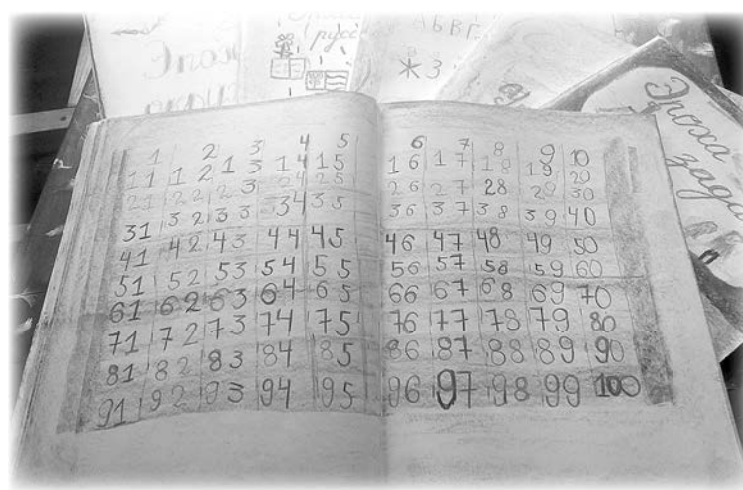 Эпох
русс
АБВГ
Ж З
Эпоха
зада
1 2 3 4 5 6 7 8 9 10
11 12 13 14 15 16 17 18 19 20
21 22 23 24 25 26 27 28 29 30
31 32 33 34 35 36 37 38 39 40
41 42 43 44 45 46 47 48 49 50
51 52 53 54 55 56 57 58 59 60
61 62 63 64 65 66 67 68 69 70
71 72 73 74 75 76 77 78 79 80
81 82 83 84 85 86 87 88 89 90
91 92 93 94 95 96 97 98 99 100